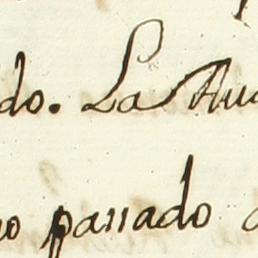 do. La Au
o passado